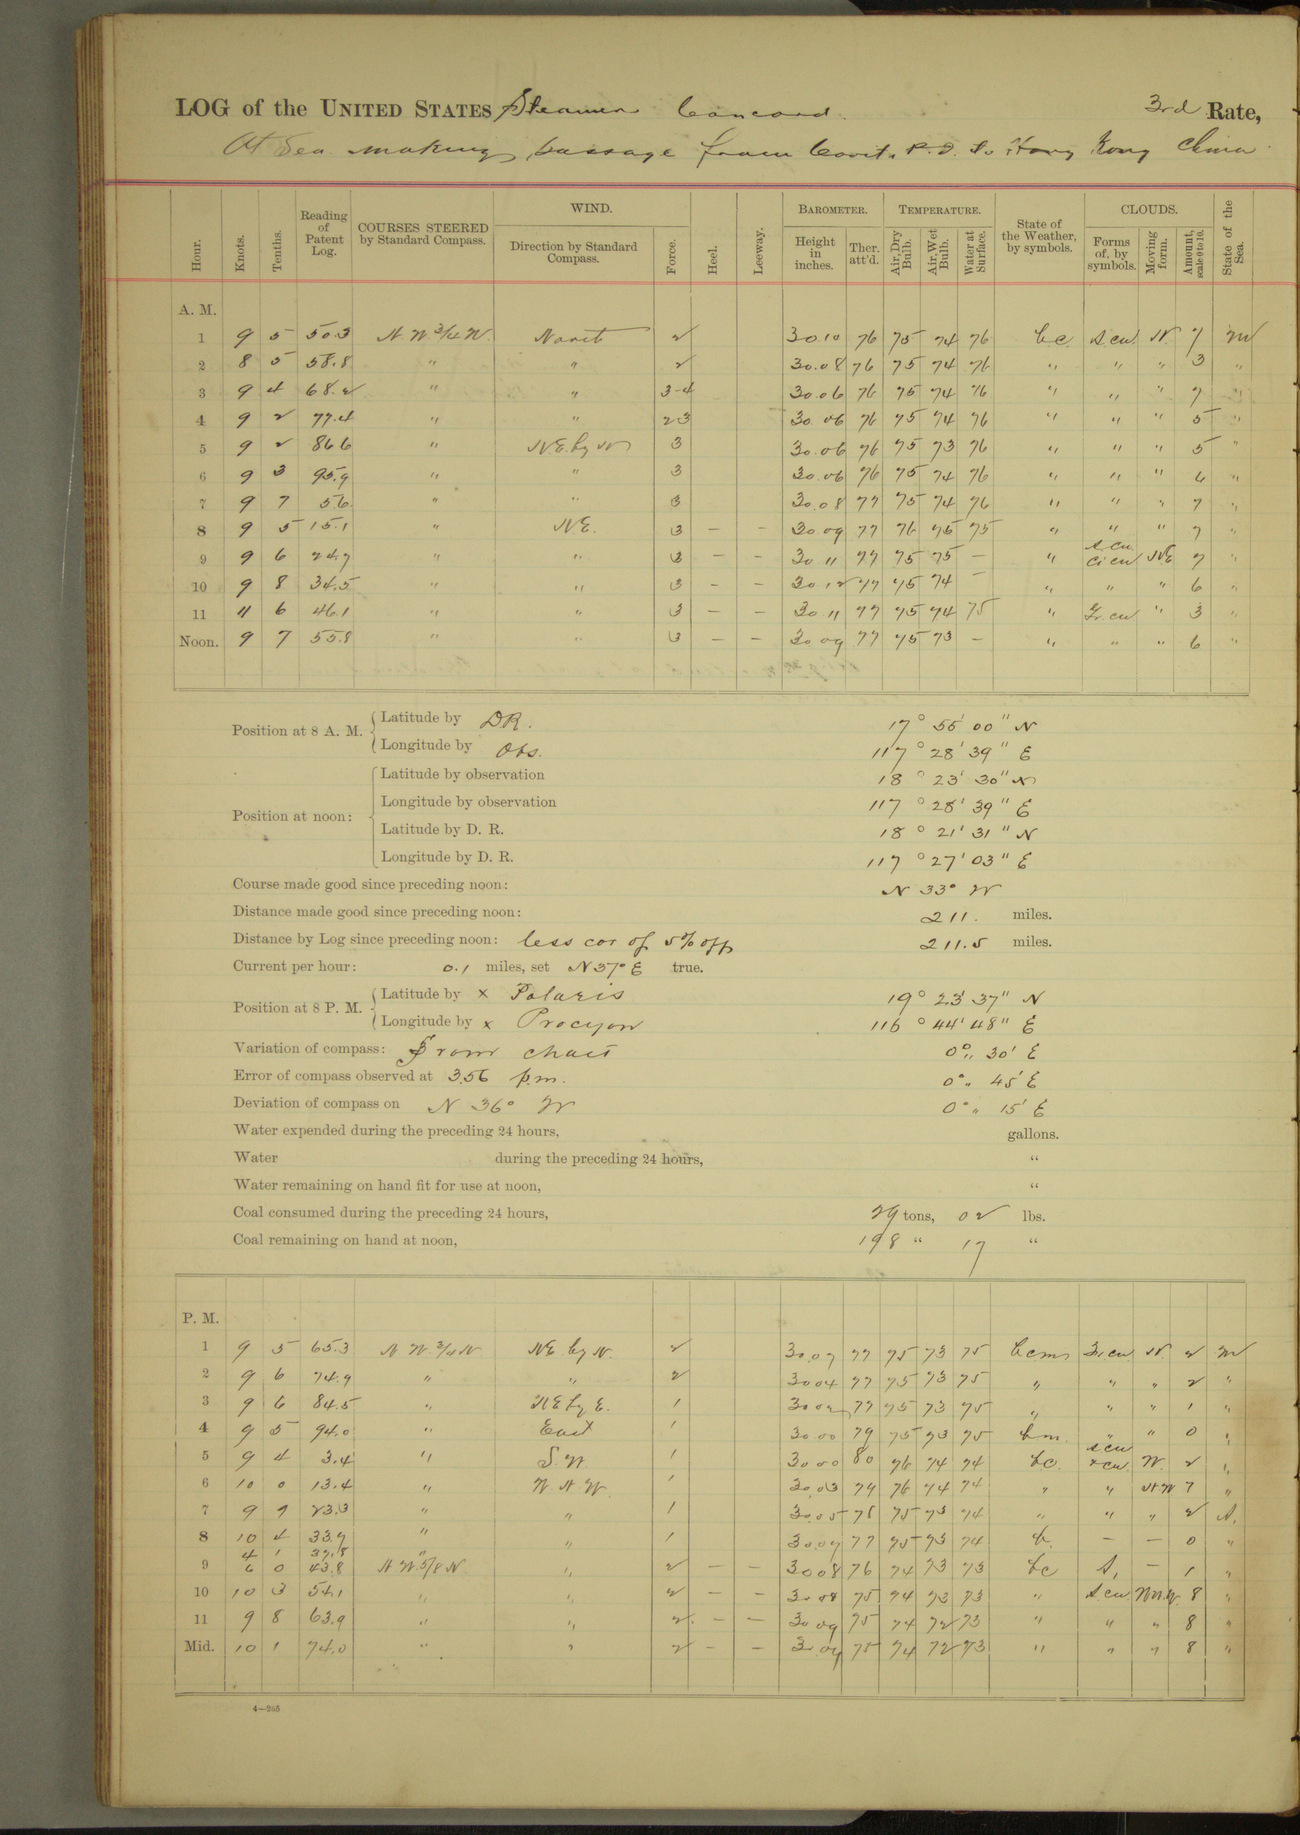 LOG of the UNITED STATES Steamer Concord. 3rd Rate,
At Sea making passage from Cavite P.I. to Hong Kong China
Hour. Knots. Tenths. Reading of Patent Log. COURSES STEERED by Standard Compass. WIND. Direction by Standard Compass. Force. Heel. Leeway. BAROMETER. Height in inches. Ther. att'd. TEMPERATURE. Air, Dry Bulb. Air, Wet Bulb. Water at Surface. State of the Weather, by symbols. CLOUDS. Forms of, by symbols. Moving form. Amount, scale 0 to 10. State of the Sea.
A. M.
1 9 5 50.3 N W 3/4 N. North 2 30.10 76 75 74 76 bc. S cu N. 7 M
2 8 5 58.8 " " 2 30.08 76 75 74 76 " " " 3 "
3 9 4 68.2 " " 3-4 30.06 76 75 74 76 " " " 7 "
4 9 2 77.4 " " 2-3 30.06 76 75 74 76 " " " 5 "
5 9 2 86.6 " NE. by N 3 30.06 76 75 73 76 " " " 5 "
6 9 3 95.9 " " 3 30.06 76 75 74 76 " " " 6 "
7 9 7 5.6 " " 3 30.08 77 75 74 76 " " " 7 "
8 9 5 15.1 " NE. 3 — — 30.09 77 76 75 75 " " " 7 "
9 9 6 24.7 " " 3 — — 30 11 77 75 75 — " S. cu Ci cu NE 7 "
10 9 8 34.5 " " 3 — — 30.12 77 75 74 — " " " 6 "
11 11 6 46.1 " " 3 — — 30.11 77 75 74 75 " Fr. cu " 3 "
Noon. 9 7 55.8 " " 3 — — 30.09 77 75 73 — " " " 6 "
Position at 8 A. M. Latitude by DR. 17° 55' 00" N
Longitude by Obs. 117° 28' 39" E
Position at noon: Latitude by observation 18° 23' 30" N
Longitude by observation 117° 28' 39" E
Latitude by D. R. 18° 21' 31" N
Longitude by D. R. 117° 27' 03" E
Course made good since preceding noon: N 33° W
Distance made good since preceding noon: 211. miles.
Distance by Log since preceding noon: less cor of 5% off 211.5 miles.
Current per hour: 0.1 miles, set N 37° E true.
Position at 8 P. M. Latitude by × Polaris 19° 23' 37" N
Longitude by × Procyon 116° 44' 48" E
Variation of compass: From chart 0° " 30' E
Error of compass observed at 3.56 p.m. 0° " 45' E
Deviation of compass on N 36° W 0° " 15' E
Water expended during the preceding 24 hours, gallons.
Water during the preceding 24 hours, "
Water remaining on hand fit for use at noon, "
Coal consumed during the preceding 24 hours, 29 tons, 02 lbs.
Coal remaining on hand at noon, 198 " 17 "
P. M.
1 9 5 65.3 N W. 3/4 N NE. by N. 2 30.07 77 75 73 75 bcm Fr. cu N. 2 M
2 9 6 74.9 " " 2 30 04 77 75 73 75 " " " 2 "
3 9 6 84.5 " NE by E. 1 30 02 77 75 73 75 " " " 1 "
4 9 5 94.0 " East 1 30.00 79 75 73 75 bm. " " 0 "
5 9 4 3.4 " S. W. 1 30 00 80 76 74 74 bc. S cu W. 2 "
6 10 0 13.4 " W N W. 1 30.03 79 76 74 74 " " N W 7 "
7 9 9 23.3 " " 1 30.05 78 75 73 74 " " " 2 S.
8 10 4 33.7 " " 1 30.07 77 75 73 74 b. — — 0 "
4 1 37.8 "
9 6 0 43.8 N W. 5/8 N " 2 — — 30 08 76 74 73 73 bc S. — 1 "
10 10 3 54.1 " " 2 — — 30.08 75 74 73 73 " S. cu WNW. 8 "
11 9 8 63.9 " " 2. — — 30 09 75 74 72 73 " " " 8 "
Mid. 10 1 74.0 " " 2 — — 30.09 75 74 72 73 " " " 8 "
4—265